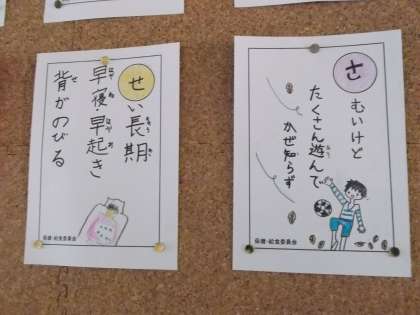 さむいけど
たくさん遊んで
かぜ知らず
保健・給食委員会
せい長期
早寝・早起き
背がのびる
保健・給食委員会